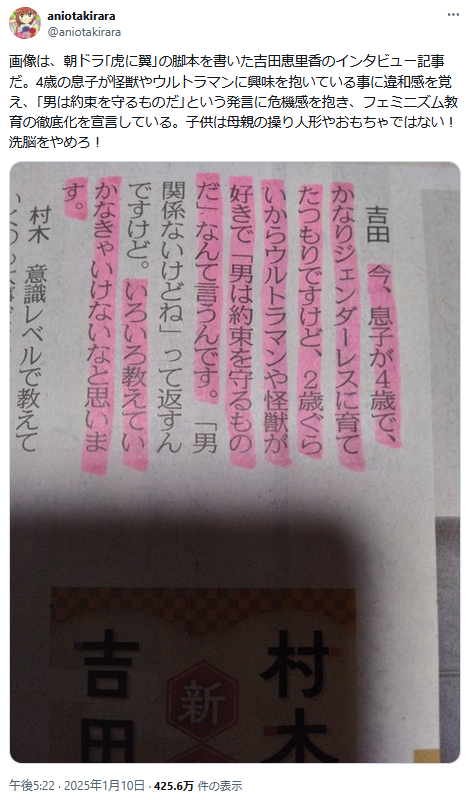 aniotakirara
@aniotakirara
画像は、朝ドラ｢虎に翼｣の脚本を書いた吉田恵里香のインタビュー記事
だ。4歳の息子が怪獣やウルトラマンに興味を抱いている事に違和感を覚
え、｢男は約束を守るものだ｣という発言に危機感を抱き、フェミニズム教
育の徹底化を宣言している。子供は母親の操り人形やおもちゃではない！
洗脳をやめろ！
吉田 今、息子が4歳で、
かなりジェンダーレスに育て
たつもりですけど、2歳ぐら
いからウルトラマンや怪獣が
好きで「男は約束を守るもの
だ」なんて言うんです。「男
関係ないけどね」って返すん
ですけど。いろいろ教えてい
かなきゃいけないなと思いま
す。
村木 意識レベルで教えて
村木
新
吉田
午後5:22 · 2025年1月10日 · 425.6万 件の表示